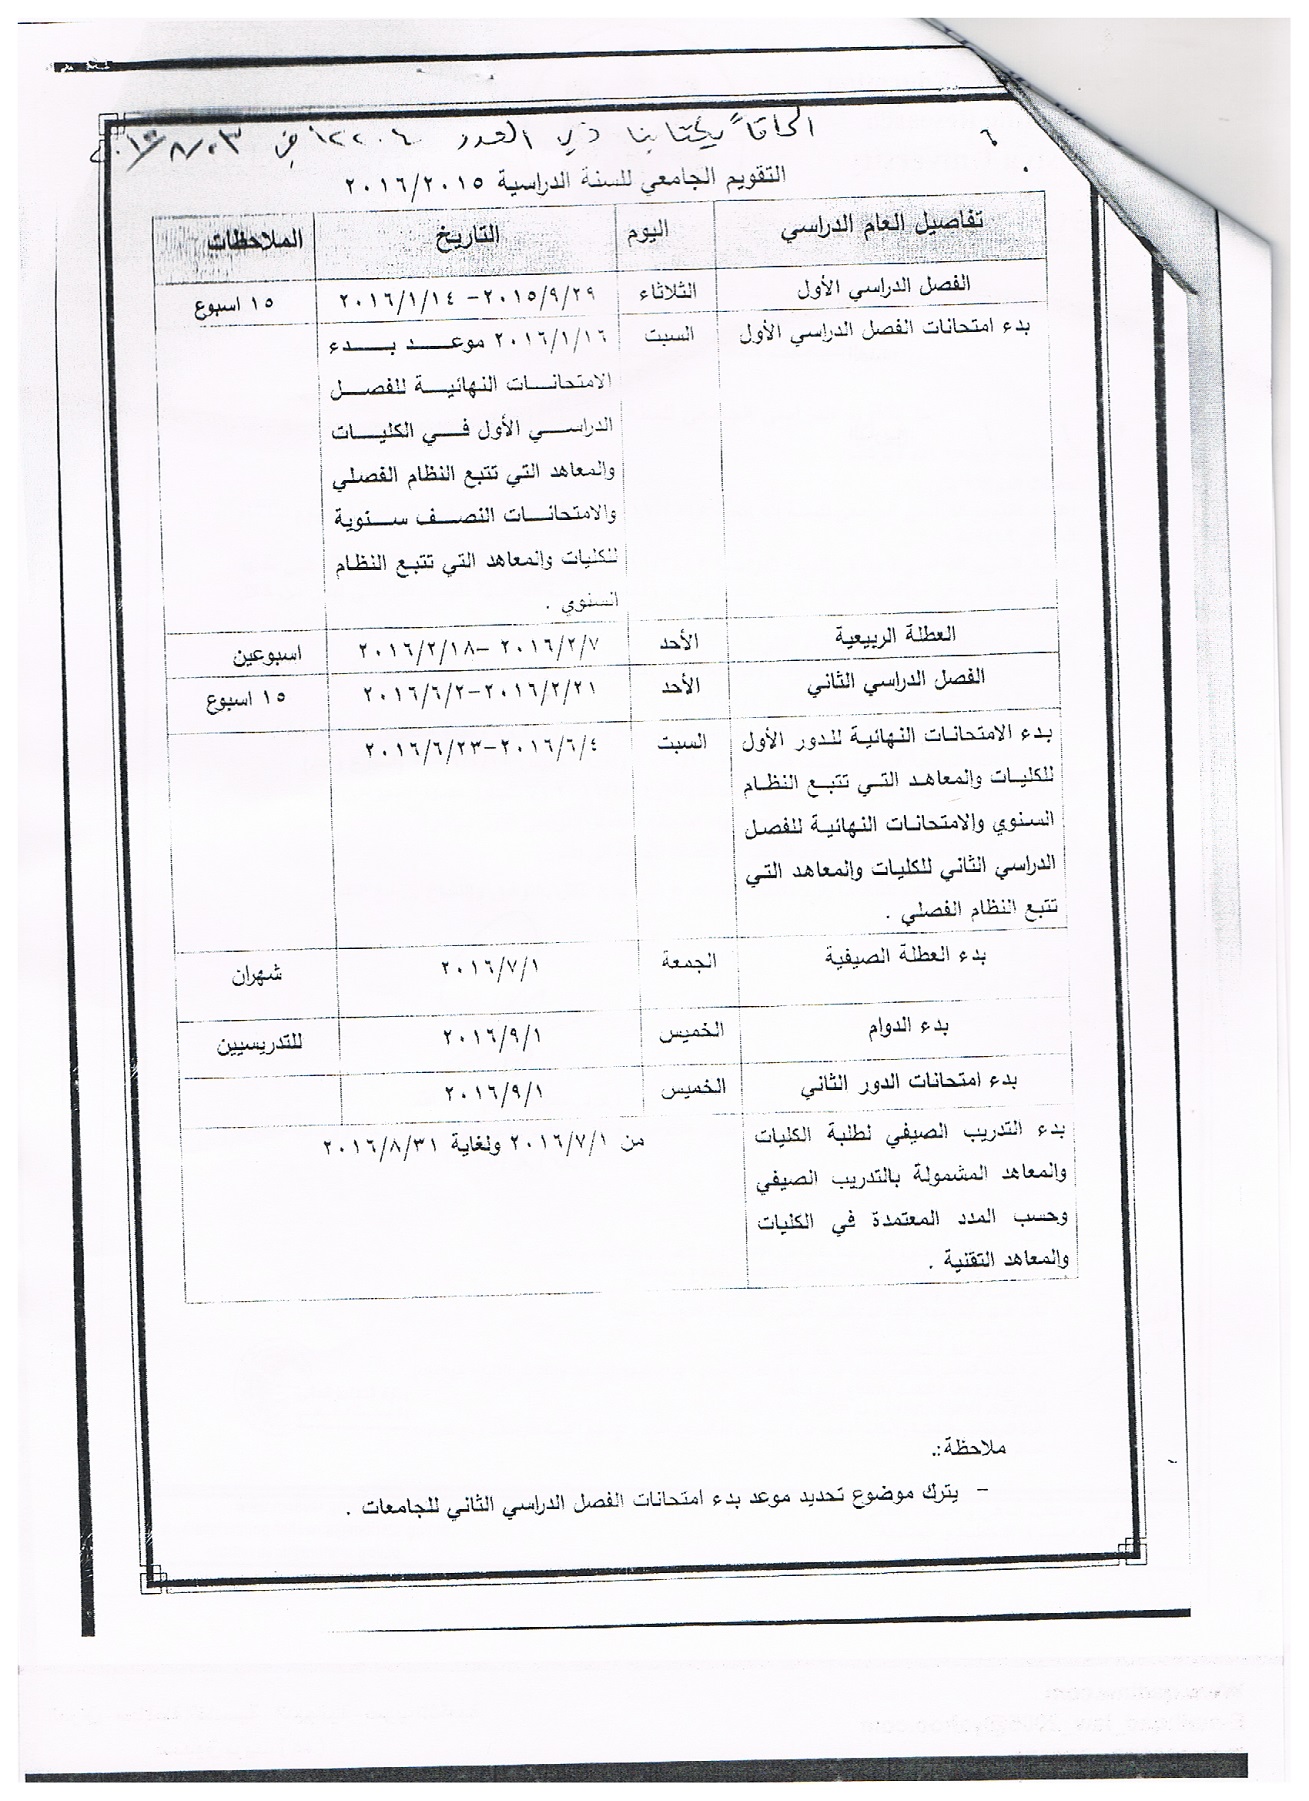 الحاقاً بكتابنا ذي العدد
التقويم الجامعي للسنة الدراسية ٢٠١٦/٢٠١٥
تفاصيل العام الدراسي اليوم التاريخ الملاحظات
الفصل الدراسي الأول الثلاثاء ٢٠١٥/٩/٢٩- ٢٠١٦/١/١٤ ١٥ اسبوع
بدء امتحانات الفصل الدراسي الأول السبت ٢٠١٦/١/١٦ موعد بدء
الامتحانات النهائية للفصل
الدراسي الأول في الكليات
والمعاهد التي تتبع النظام الفصلي
والامتحانات النصف سنوية
للكليات والمعاهد التي تتبع النظام
السنوي .
العطلة الربيعية الأحد ٢٠١٦/٢/٧ –٢٠١٦/٢/١٨ اسبوعين
الفصل الدراسي الثاني الأحد ٢٠١٦/٢/٢١-٢٠١٦/٦/٢ ١٥ اسبوع
بدء الامتحانات النهائية للدور الأول السبت ٢٠١٦/٦/٤-٢٠١٦/٦/٢٣
للكليات والمعاهد التي تتبع النظام
السنوي والامتحانات النهائية للفصل
الدراسي الثاني للكليات والمعاهد التي
تتبع النظام الفصلي .
بدء العطلة الصيفية الجمعة ٢٠١٦/٧/١ شهران
بدء الدوام الخميس ٢٠١٦/٩/١ للتدريسيين
بدء امتحانات الدور الثاني الخميس ٢٠١٦/٩/١
بدء التدريب الصيفي لطلبة الكليات من ٢٠١٦/٧/١ ولغاية ٢٠١٦/٨/٣١
والمعاهد المشمولة بالتدريب الصيفي
وحسب المدد المعتمدة في الكليات
والمعاهد التقنية .
ملاحظة:.
- يترك موضوع تحديد موعد بدء امتحانات الفصل الدراسي الثاني للجامعات .